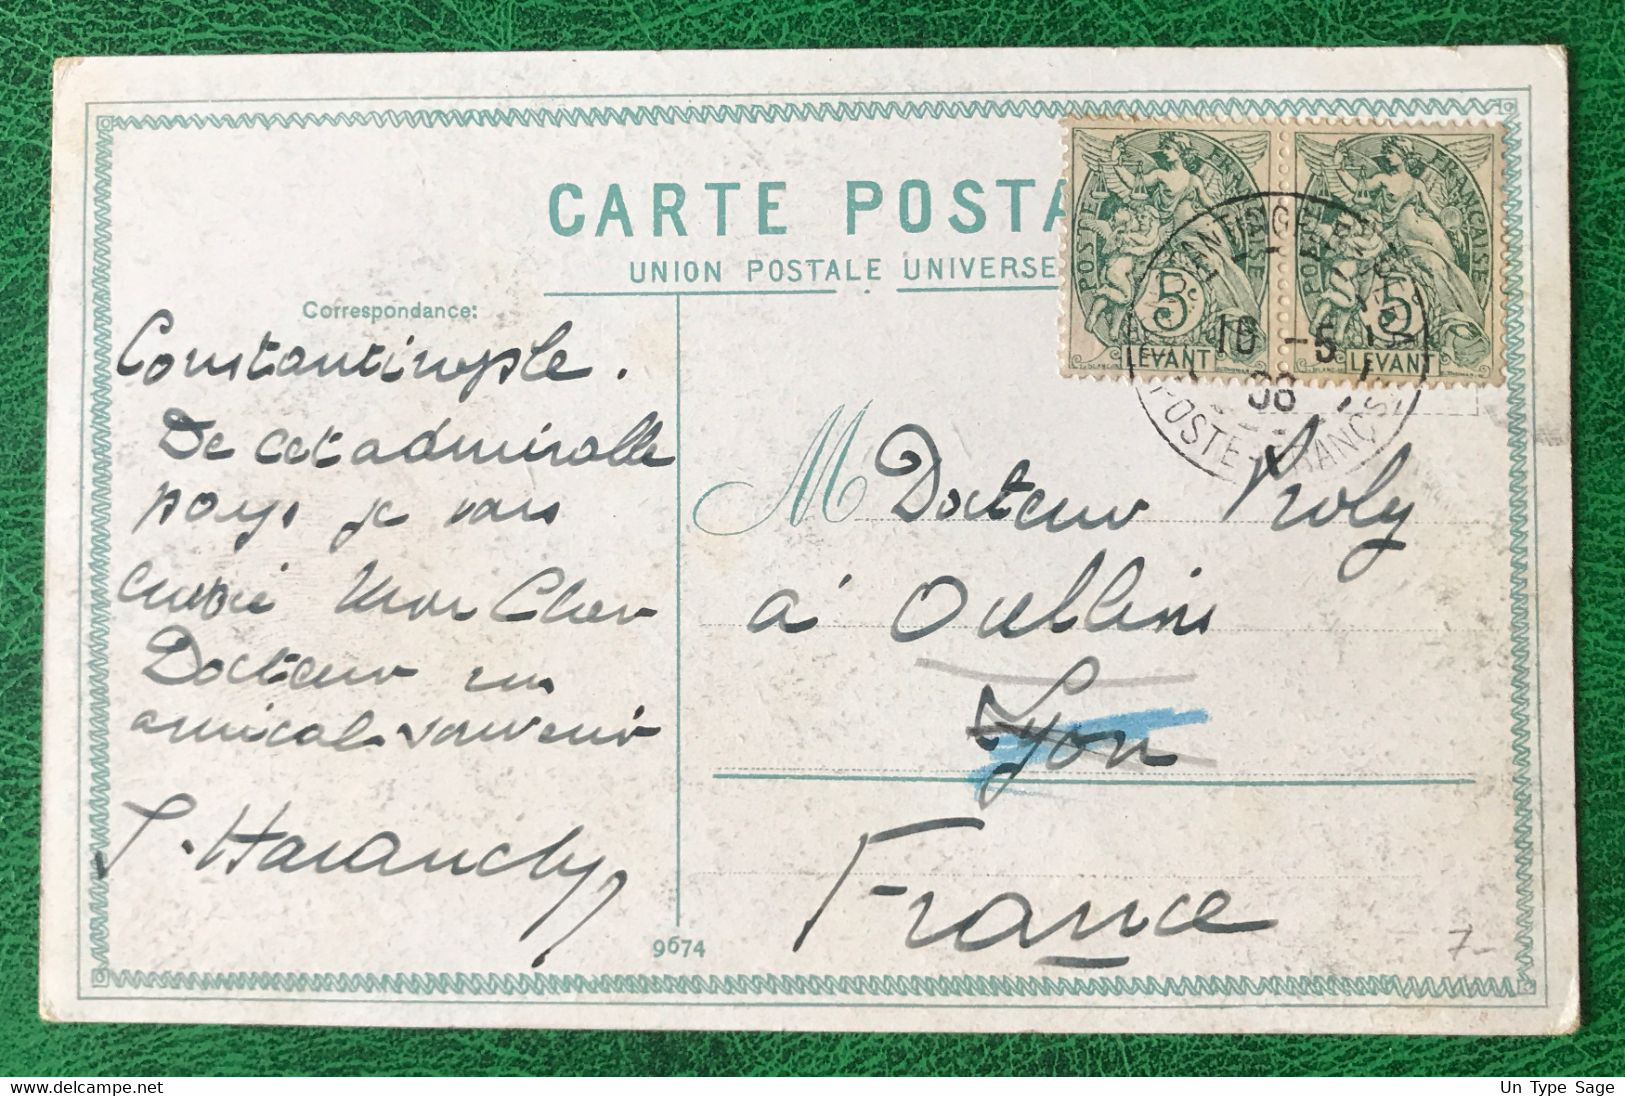 CARTE POSTA
UNION POSTALE UNIVERSE
Correspondance:
Constantinople.
De cet admirable
pays je vous
envoie Mon Cher
Docteur un
amical souvenir
J. Haranchy
M Docteur Proly
à Oullins
Lyon
France
9674
7-
POSTE FRANÇAISE
5
LEVANT
POSTE FRANÇAISE
5
LEVANT
16 -5
08
POSTE FRANÇSE
delcampe.net
Un Type Sage